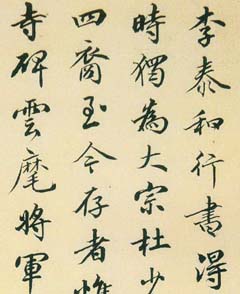 李泰和行書得
時獨為大宗杜少
四裔至今存者惟
寺碑雲麾將軍